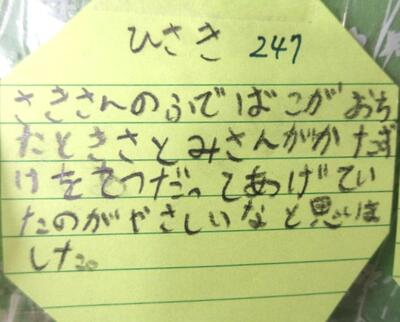 ひさき 247
さきさんのふでばこがおち
たときさとみさんがかたづ
けをてつだってあっげてい
たのがやさしいなと思いま
した。